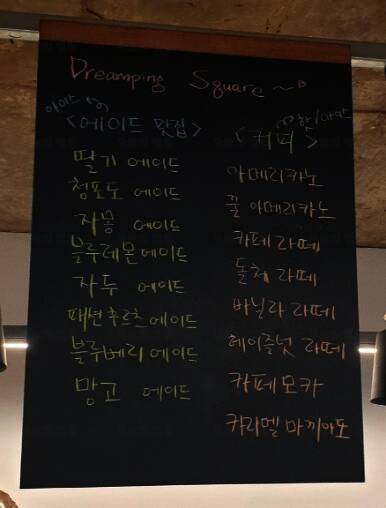 Dreamping Square ~
아이스
<에이드 맛집>
딸기 에이드
청포도 에이드
자몽 에이드
블루레몬 에이드
자두 에이드
패션후르츠 에이드
블루베리 에이드
망고 에이드
핫/아이스
<커피>
아메리카노
꿀 아메리카노
카페 라떼
돌체 라떼
바닐라 라떼
헤이즐넛 라떼
카페모카
캬라멜 마끼아또